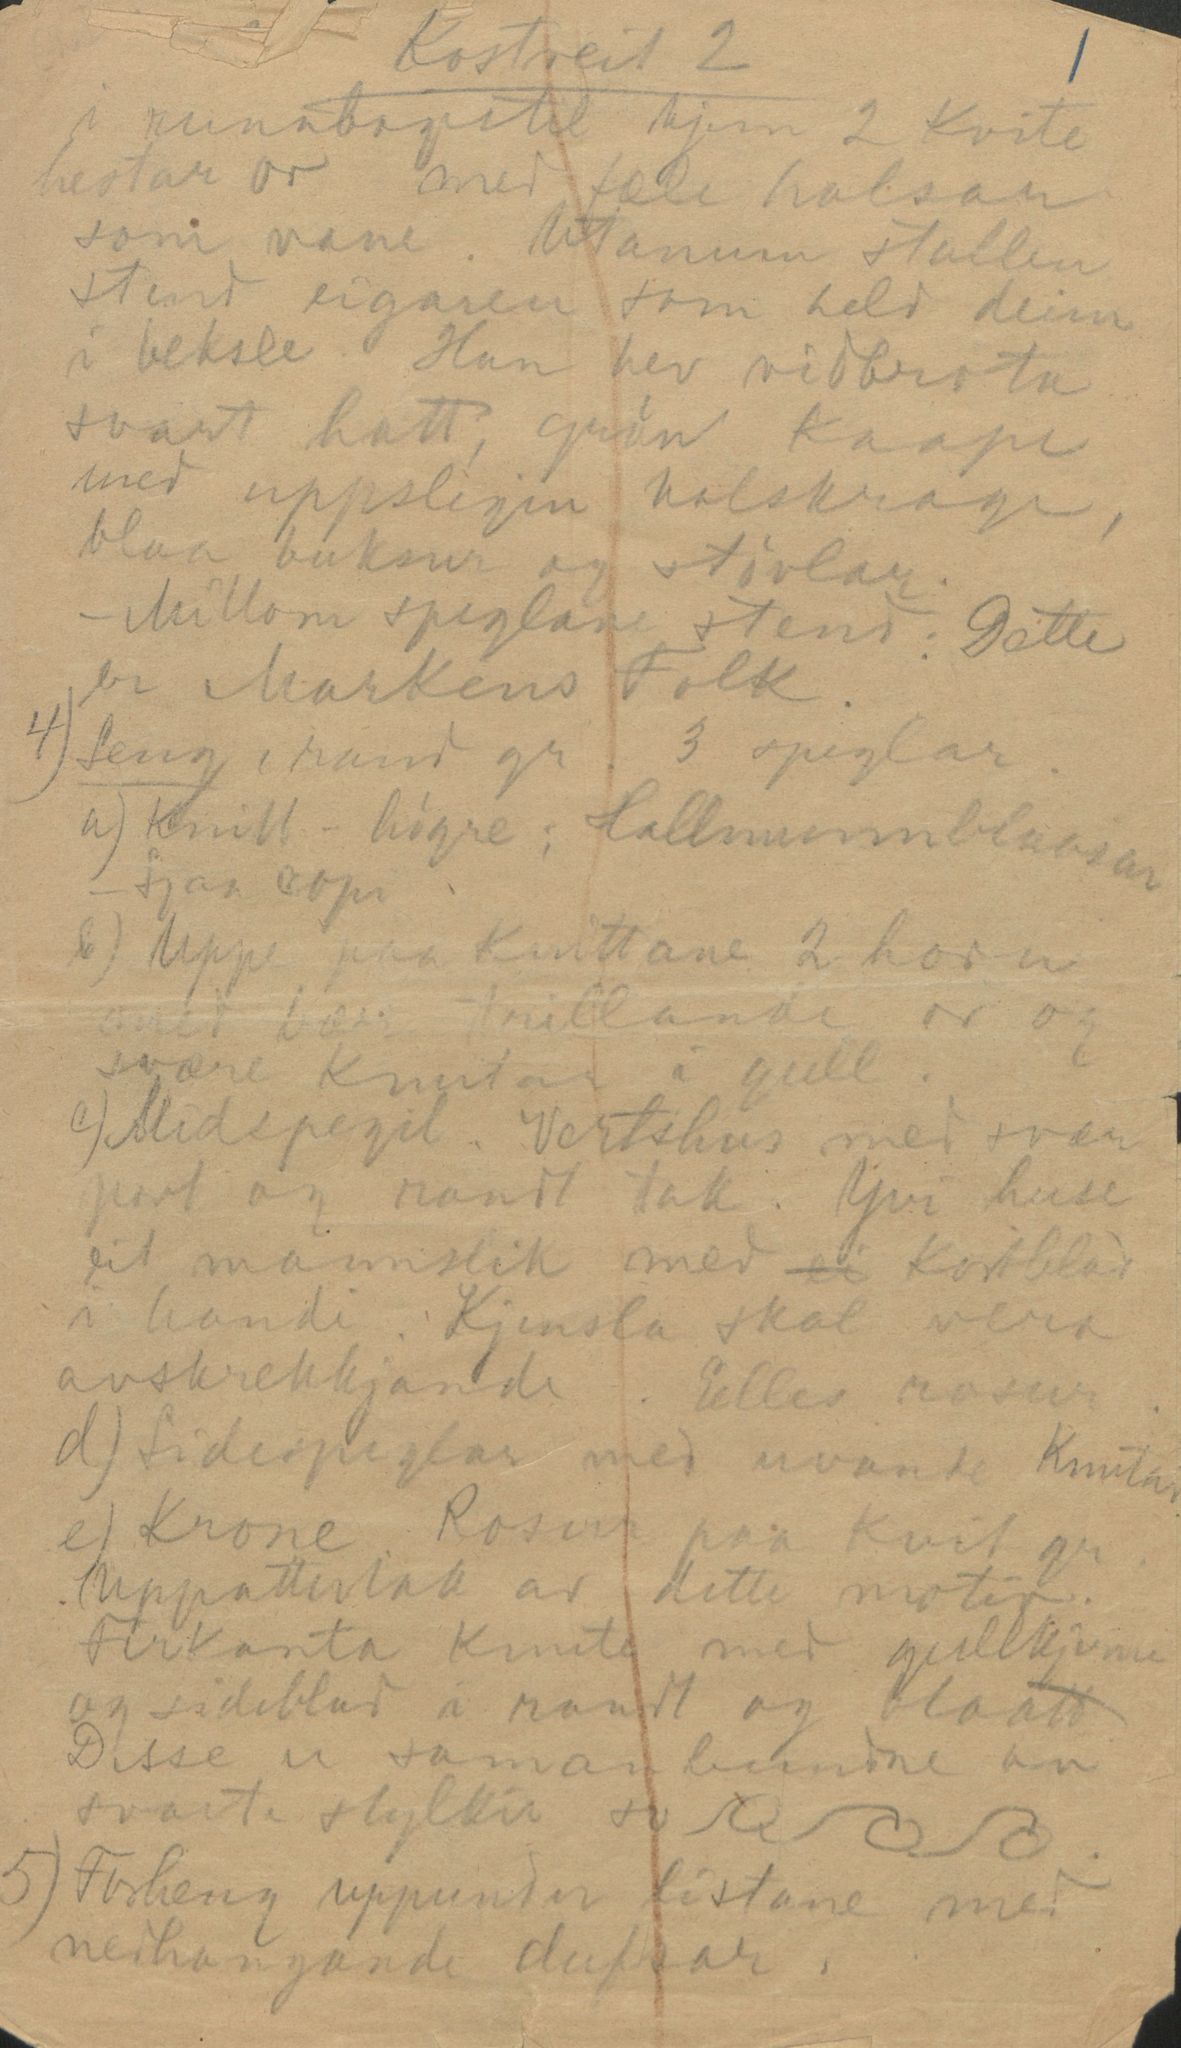 Kostveit 2
1
i runabogstil kjem 2 kvite
hestar or med fæle halsar
som vane. Utanum stallen
stend eigaren som held deim
i beksle. Han hev vidbrota
svart hatt, grøn kaape
med uppslegin halskrage,
blaa buksur og støvlar.
- Millom speglane stend: Dette
er Markens Folk.
4) Seng i raud gr. 3 speglar.
a) Knitt - høgre; Hallmunnblaasar
- Sjaa copi
b) Uppe paa Knittane 2 horn
med bær trillande or og
svære knutar i gull.
c) Midspegil. Vertshus med svær
port og raudt tak. Yvi huse
eit mannslik med ei kortblad
i handi. Kjensla skal vera
avskrekkjande. Elles rosur.
d) Sidespeglar med uvande Knutar
e) Krone. Rosur paa kvit gr.
Uppattertak av dette motiv.
Firkanta knute med gullkjerne
og sideblad i raudt og blaatt
Disse er samanbundne av
svarte stylkir so
5) Forheng uppunder listane med
nedhangande duskar.